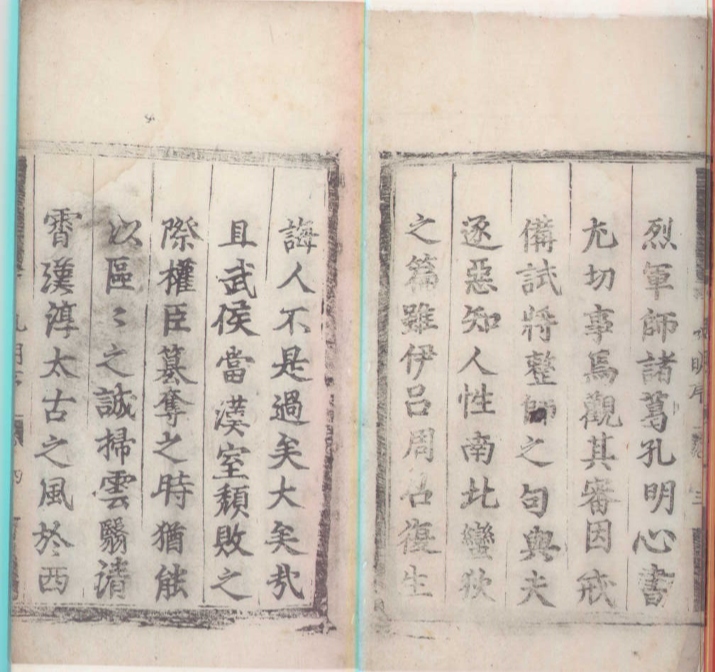 烈軍師諸葛孔明心書
尤切事爲觀其審因戒
備試將整師之句與夫
逐惡知人性南北蠻狄
之篇雖伊呂周召復生
誨人不是過矣大矣㢤
且武侯當漢室頹敗之
際權臣簒奪之時猶能
以區〻之誠掃雲翳清
霄漢淳太古之風於西